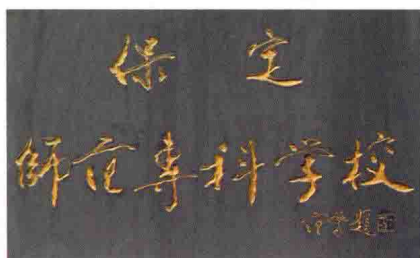 保定
師范專科学校